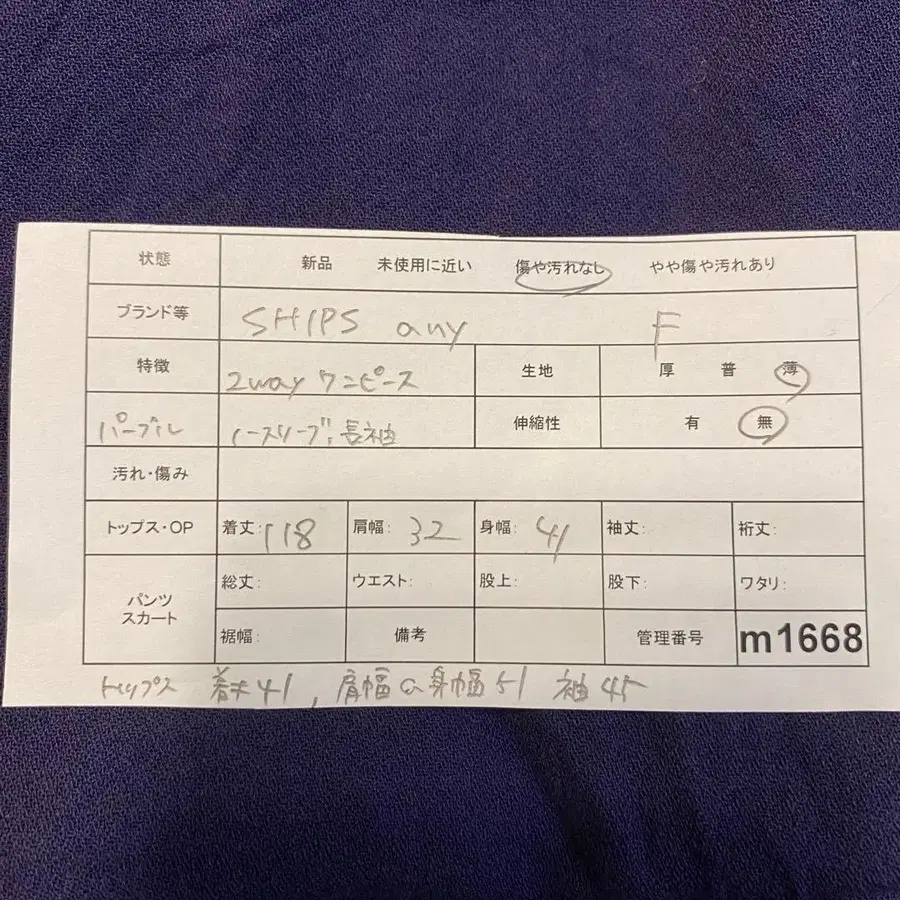 状態 新品 未使用に近い 傷や汚れなし やや傷や汚れあり
ブランド等 SHIPS any F
特徴 2way ワンピース 生地 厚 普 薄
パープル ノースリーブ、長袖 伸縮性 有 無
汚れ・傷み
トップス・OP 着丈:118 肩幅: 32 身幅: 41 袖丈: 裄丈:
パンツ スカート 総丈: ウエスト: 股上: 股下: ワタリ:
裾幅: 備考 管理番号 m1668
トップス 着丈41, 肩幅 身幅51 袖45